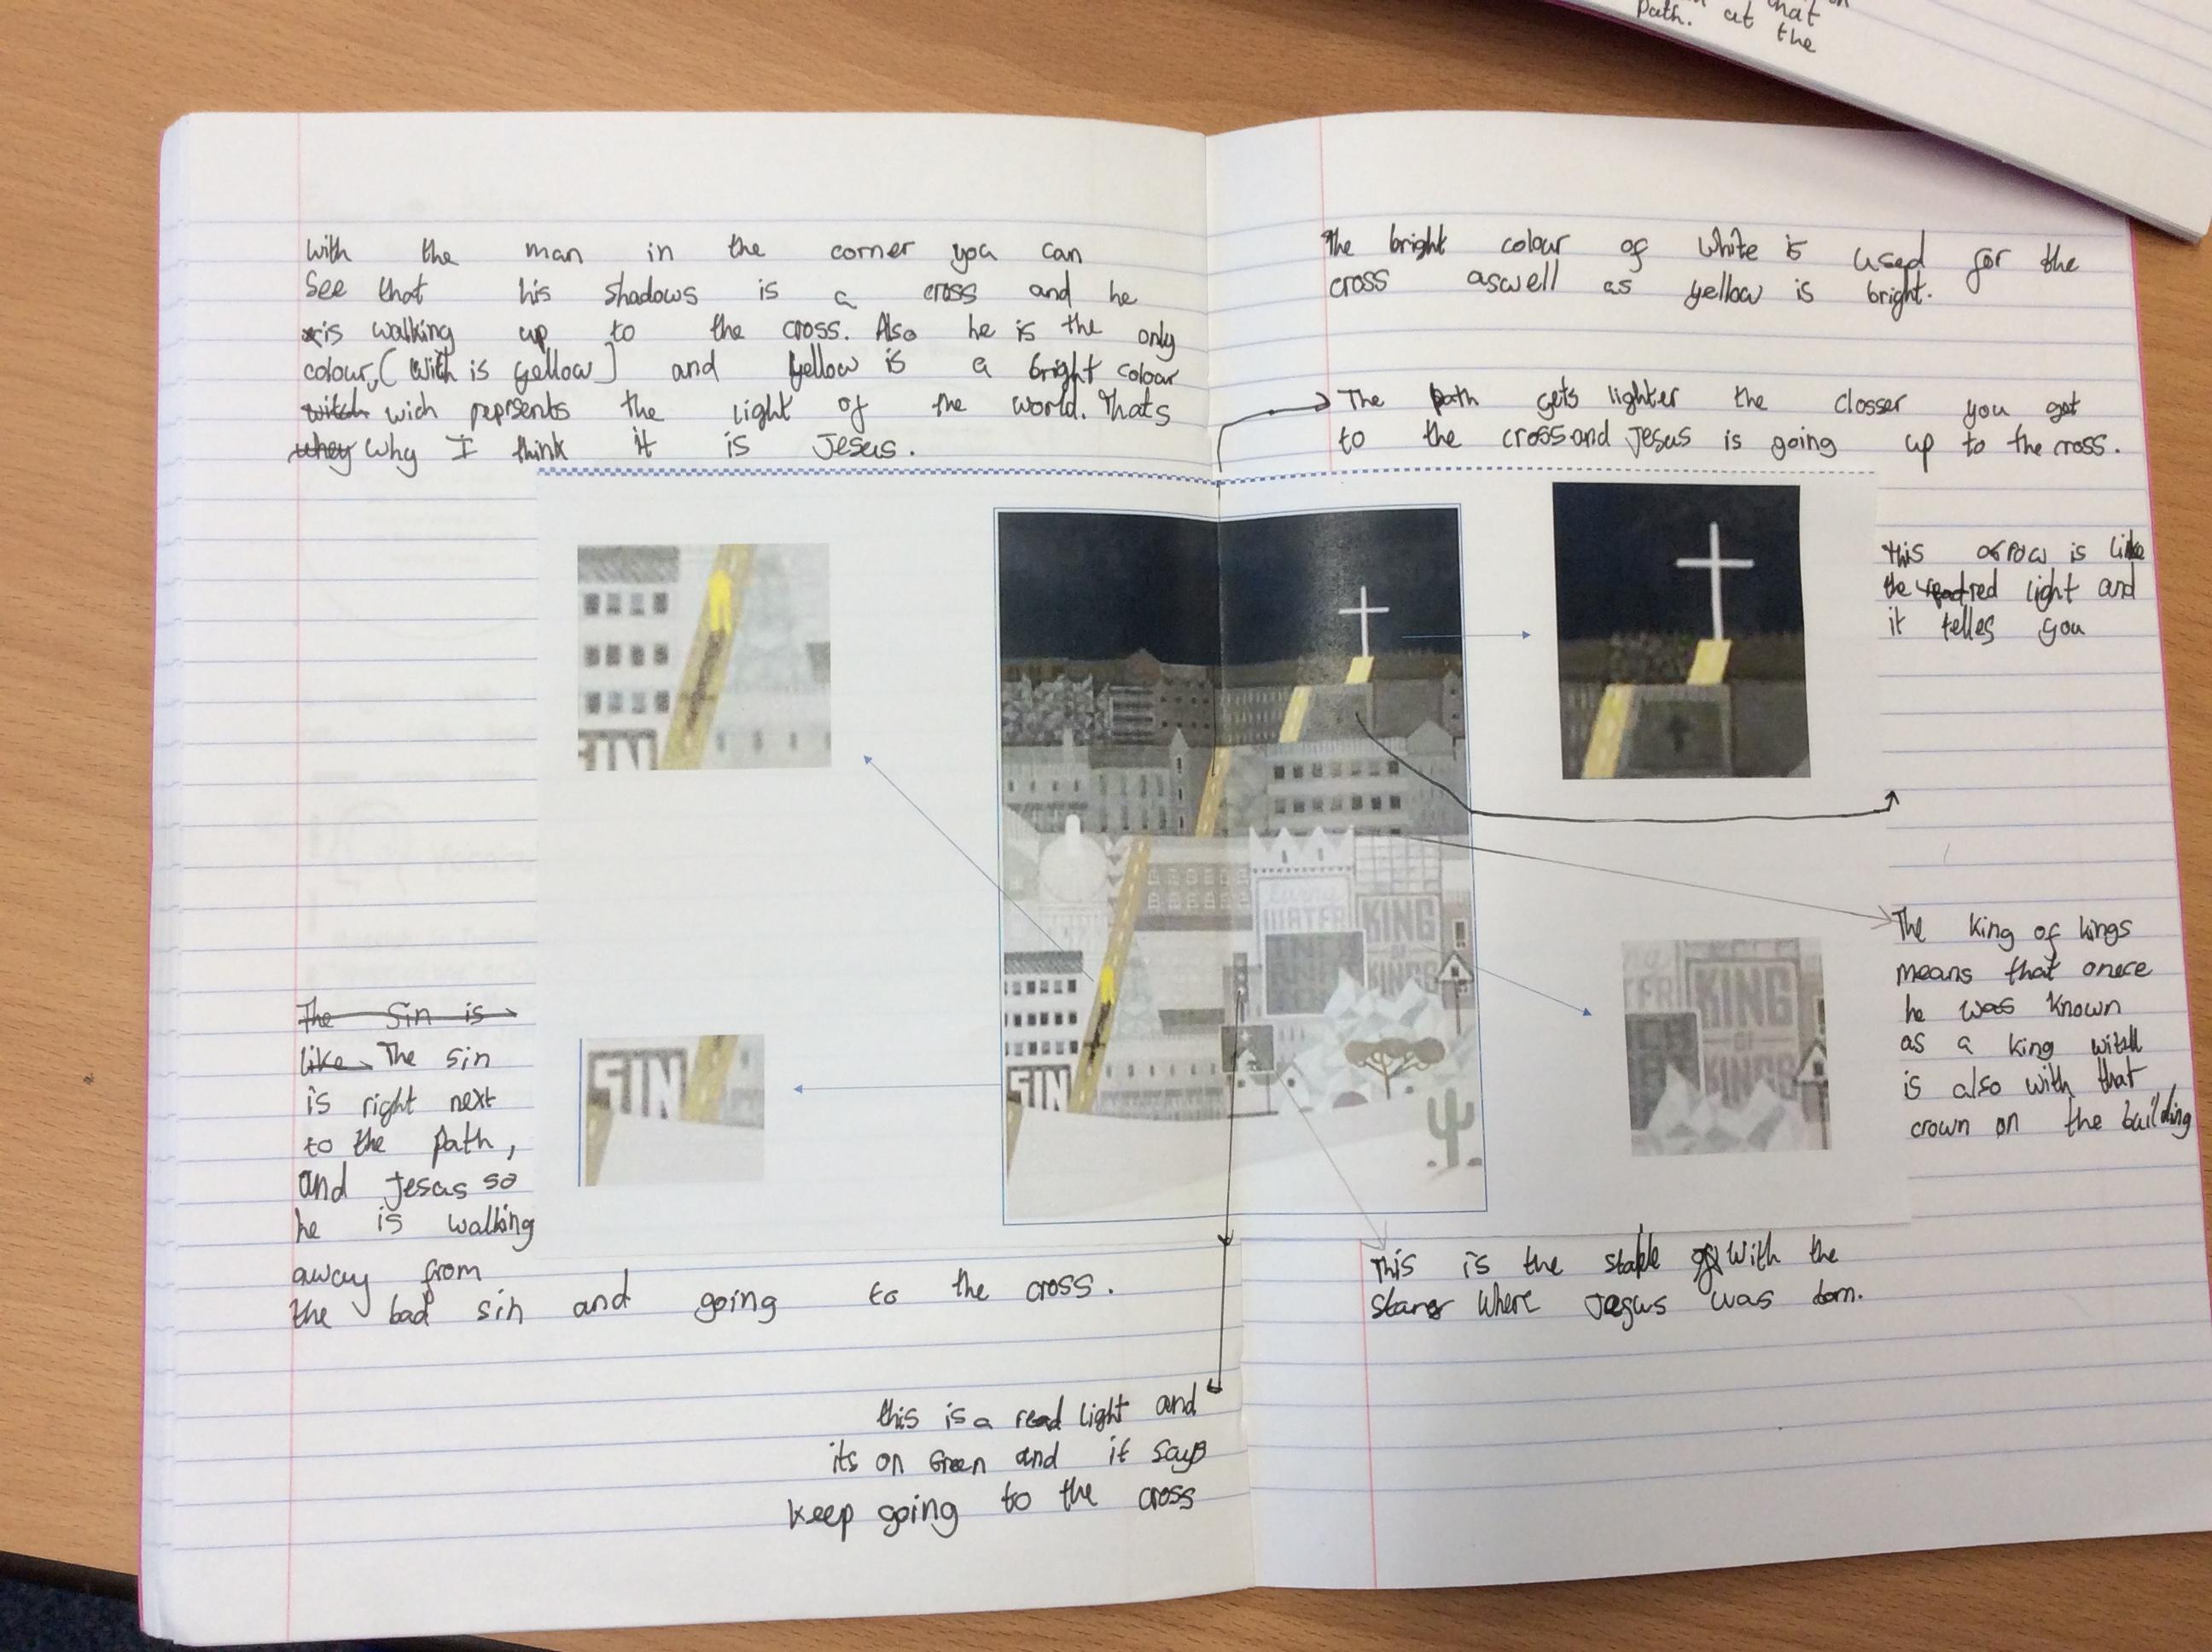 With the man in the corner you can
See that his shadows is a cross and he
is walking up to the cross. Also he is the only
colour, (With is yellow) and yellow is a bright colour
witch wich reprsents the light of the world. Thats
whey why I think it is Jesus.
The Sin is
like The sin
is right next
to the path,
and Jesus so
he is walking
away from
the bad sin and going to the cross.
this is a read light and
its on Green and it says
keep going to the cross
The bright colour of white is used for the
cross aswell as yellow is bright.
The path gets lighter the closser you get
to the cross and Jesus is going up to the cross.
this arow is like
the red light and
it telles you
The King of kings
means that onece
he was known
as a king
is also with that
crown on the building
This is the stable With the
Where was
SIN
SIN
SIN
WATER
KING
OF
KINGS
KING
OF
KINGS
that
Path. at the